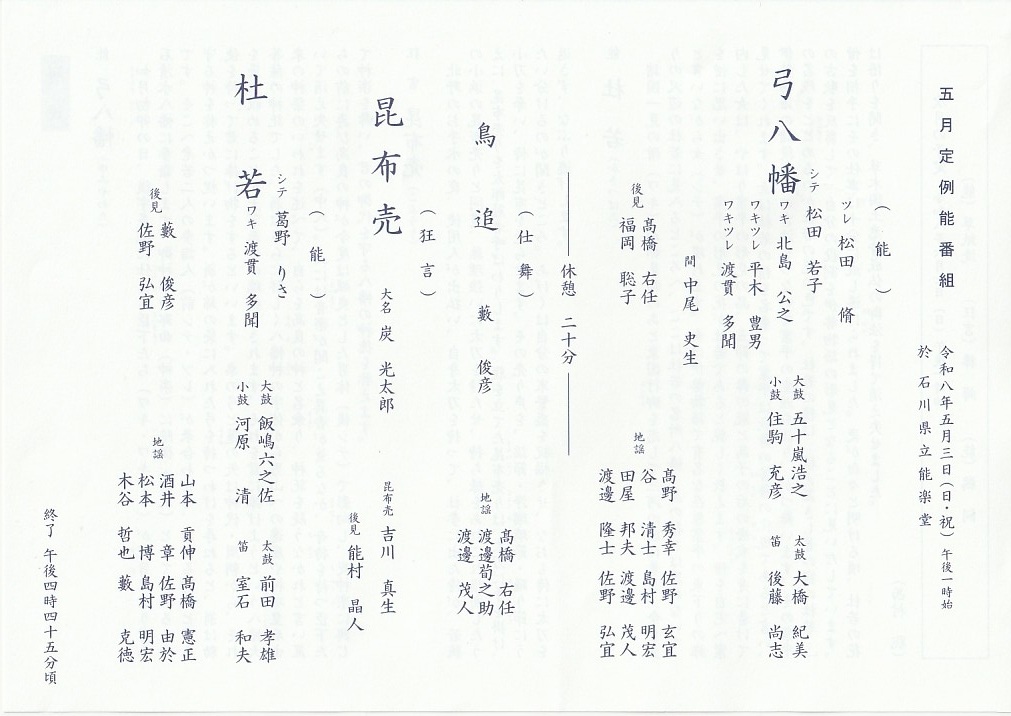 五月定例能番組
令和八年五月三日(日・祝)午後一時始
於 石川県立能楽堂
(能)
弓八幡
ツレ 松田 脩
シテ 松田 若子
ワキ 北島 公之
ワキツレ 平木 豊男
ワキツレ 渡貫 多聞
間 中尾 史生
大鼓 五十嵐浩之
小鼓 住駒 充彦
太鼓 大橋 紀美
笛 後藤 尚志
後見 髙橋 右任
福岡 聡子
地謡
髙野 秀幸 佐野 玄宜
谷 清士 島村 明宏
田屋 邦夫 渡邊 茂人
渡邊 隆士 佐野 弘宜
休憩 二十分
(仕舞)
鳥追 藪 俊彦
地謡
髙橋 右任
渡邊荀之助
渡邊 茂人
(狂言)
昆布売
大名 炭 光太郎
昆布売 吉川 真生
後見 能村 晶人
(能)
杜若
シテ 葛野 りさ
ワキ 渡貫 多聞
大鼓 飯嶋六之佐
小鼓 河原 清
太鼓 前田 孝雄
笛 室石 和夫
後見 藪 俊彦
佐野 弘宜
地謡
山本 貢伸 髙橋 憲正
酒井 章 佐野 由於
松本 博 島村 明宏
木谷 哲也 藪 克徳
終了 午後四時四十五分頃